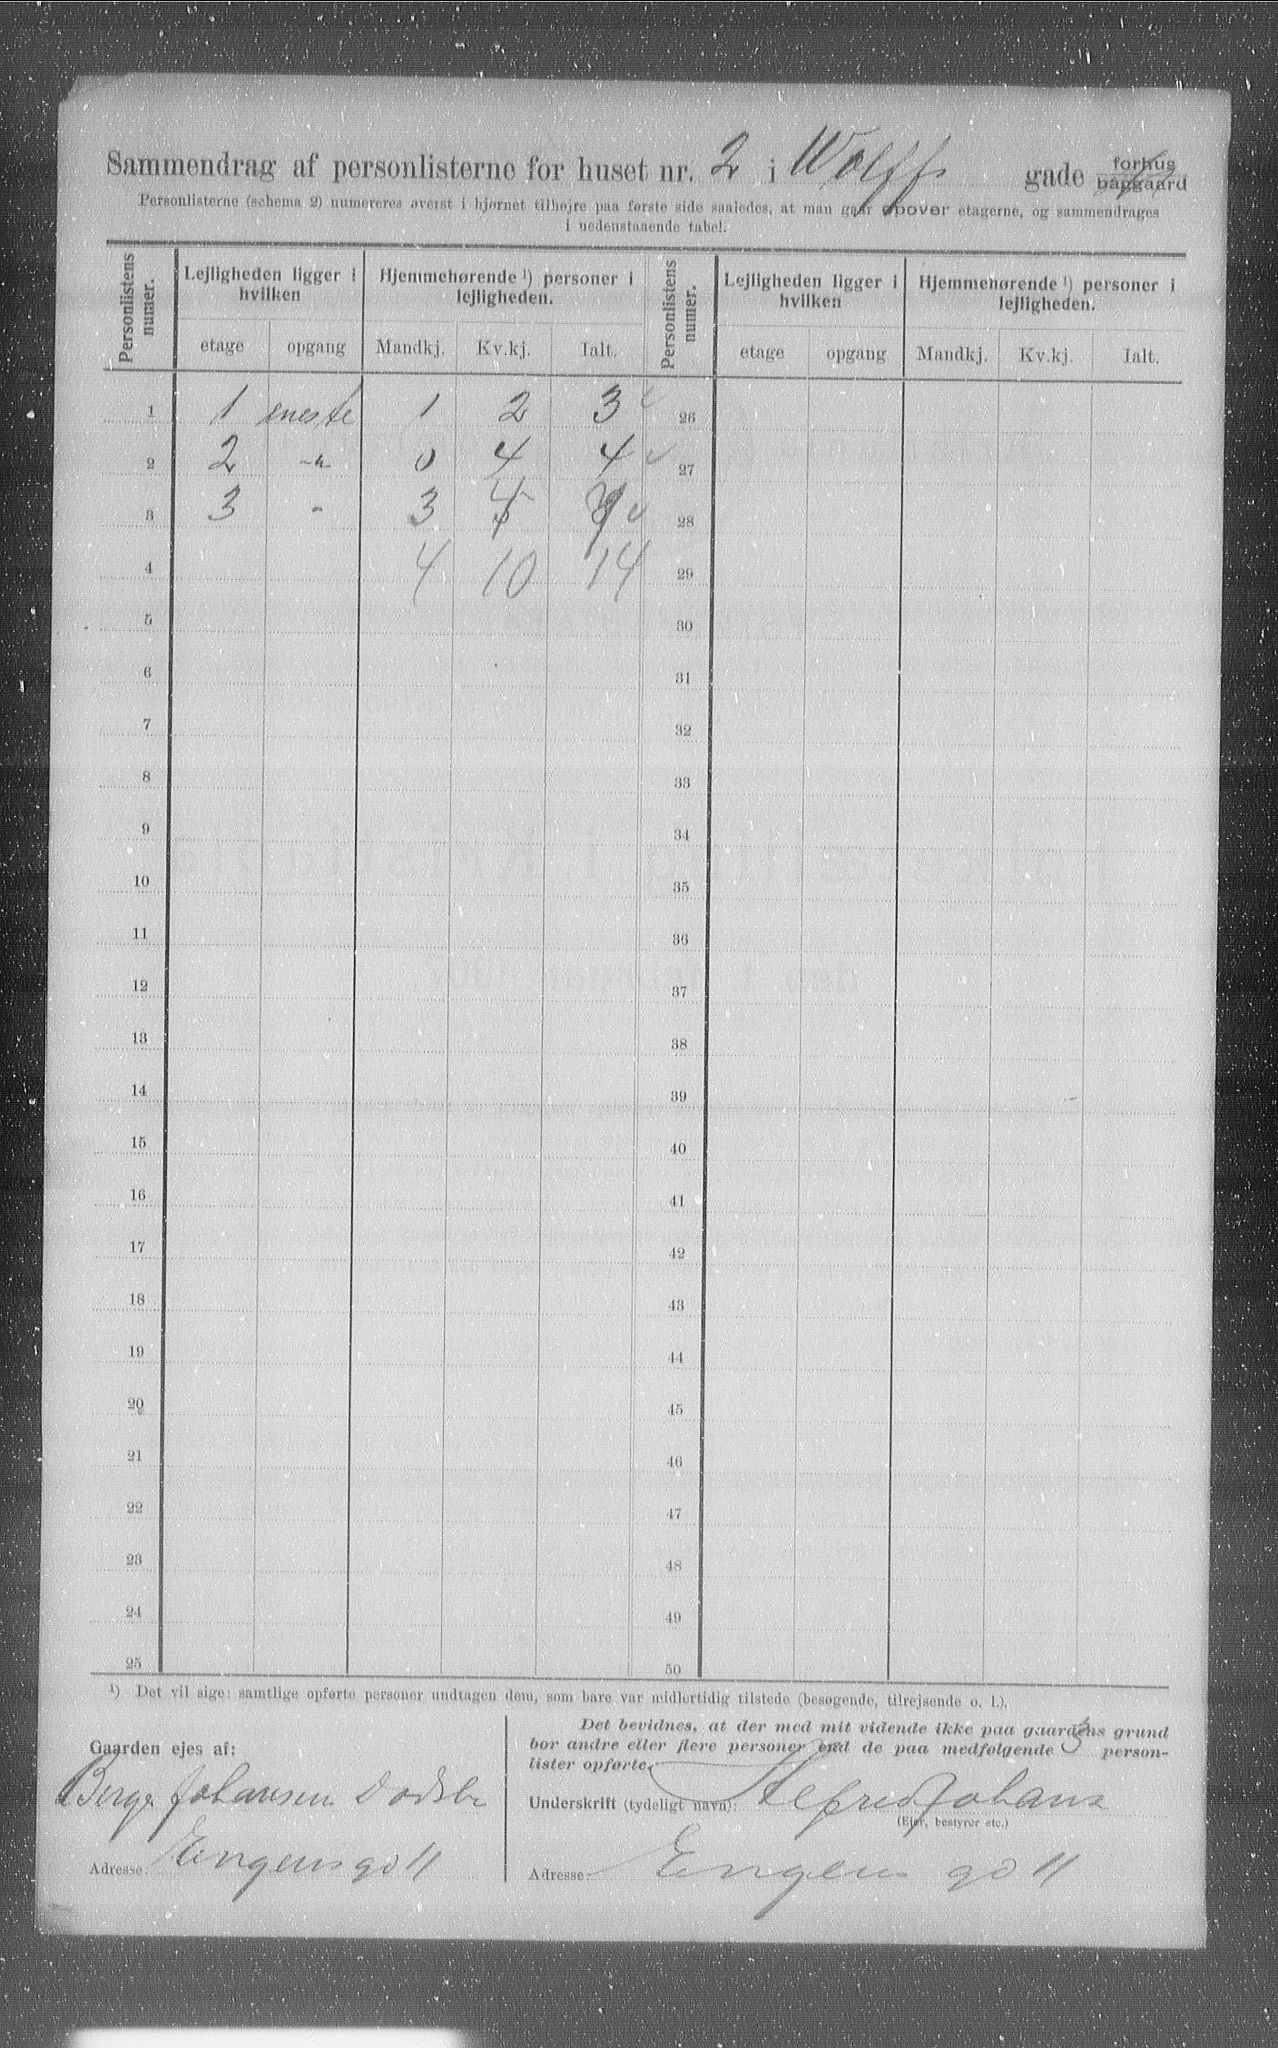 Sammendrag af personlisterne for huset nr. 2 i Wolffs gade forhus bakgaard
Personlisterne (schema 2) numereres øverst i hjørnet tilhøjre paa første side saaledes, at man gaar opover etagerne, og sammendrages
i nedenstaaende tabel.
Personlistens numer. Lejligheden ligger i hvilken Hjemmehørende ¹) personer i lejligheden. Personlistens numer. Lejligheden ligger i hvilken Hjemmehørende ¹) personer i lejligheden.
etage opgang Mandkj. Kv.kj. Ialt. etage opgang Mandkj. Kv.kj. Ialt.
1 1 eneste 1 2 3 26
2 2 -"- 0 4 4 27
3 3 - 3 4 28
4 4 10 14 29
5 30
6 31
7 32
8 33
9 34
10 35
11 36
12 37
13 38
14 39
15 40
16 41
17 42
18 43
19 44
20 45
21 46
22 47
23 48
24 49
25 50
¹) Det vil sige: samtlige opførte personer undtagen dem, som bare var midlertidig tilstede (besøgende, tilrejsende o. l.).
Gaarden ejes af:
Birger Johansen Dødsbo
Adresse: Engensgd 11
Det bevidnes, at der med mit vidende ikke paa gaardens grund
bor andre eller flere personer end de paa medfølgende 3 person-
lister opførte.
Underskrift (tydeligt navn): Alfred Johans
(Ejer, bestyrer etc.)
Adresse: Engens gd 11